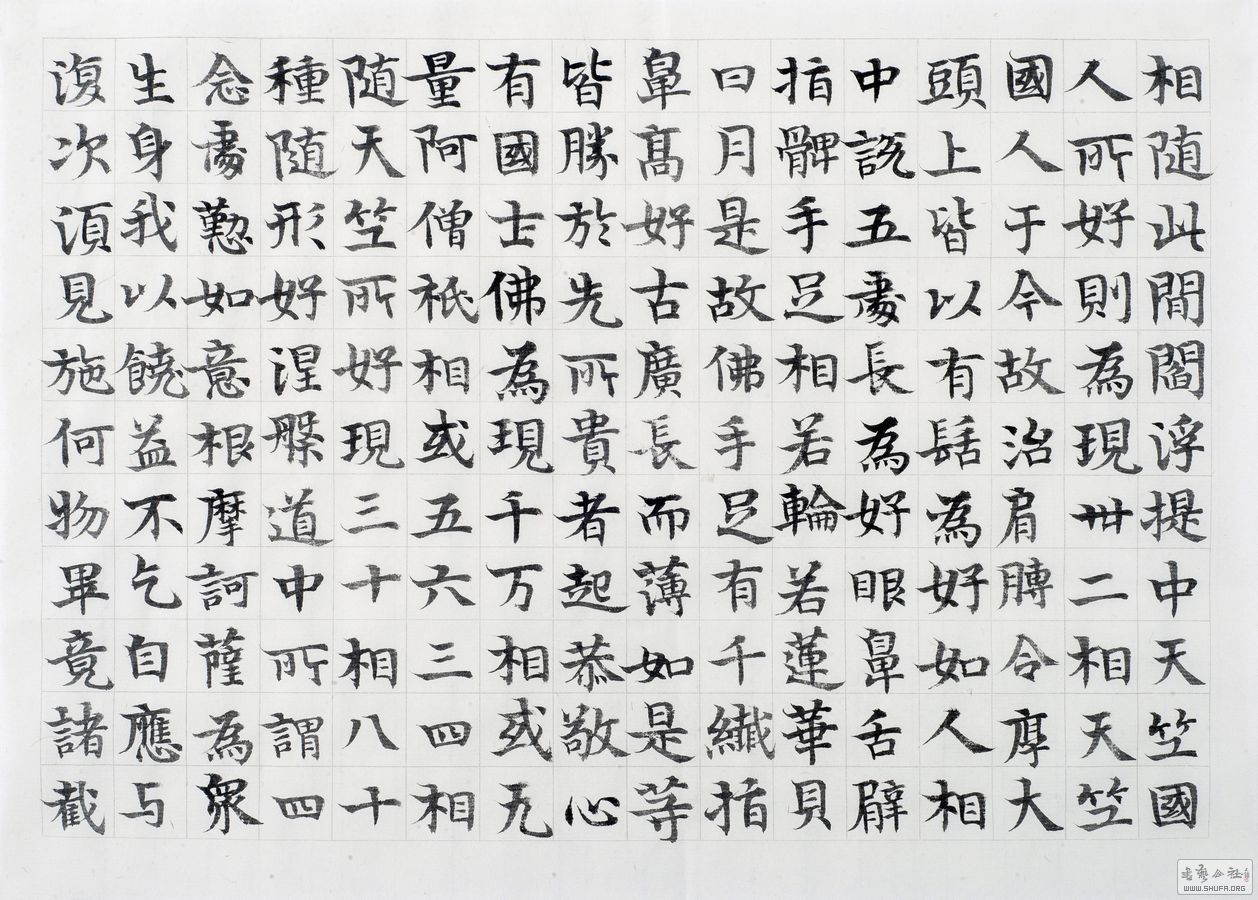 相随此間閻浮提中天竺國
人所好則為現卅二相天竺
國人于今故治肩膊令厚大
頭上皆以有髻為好如人相
中說五處長為好眼鼻舌臂
指髀手足相若輪若蓮華貝
日月是故佛手足有千纖指
鼻髙好古廣長而薄如是等
皆勝於先所貴者起恭敬心
有國土佛為現千万相或无
量阿僧祇相或五六三四相
随天竺所好現三十相八十
種随形好涅槃道中所謂四
念處懃如意根摩訶薩為衆
生身我以饒益不乞自應与
復次須見施何物畢竟諸截
WWW.SHUFA.ORG